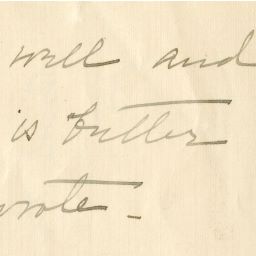 well and
is better
wrote.